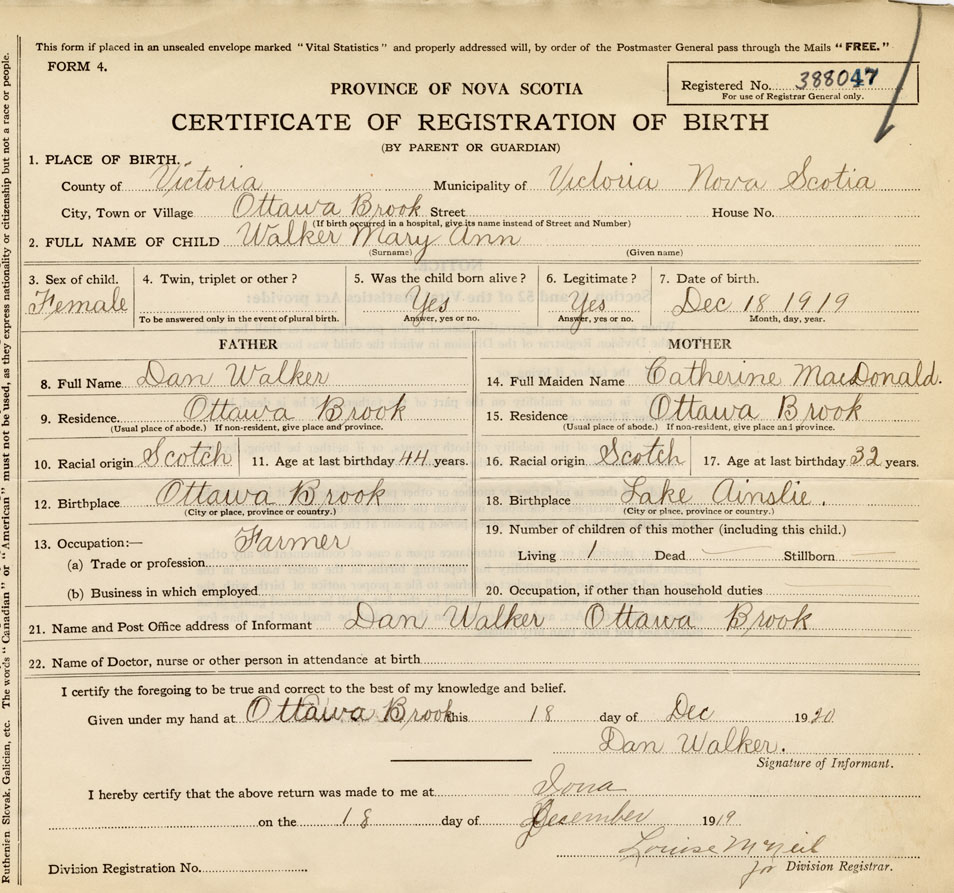 This form if placed in an unsealed envelope marked "Vital Statistics" and properly addressed will, by order of the Postmaster General pass through the Mails "FREE."
FORM 4.
PROVINCE OF NOVA SCOTIA
Registered No. 388047
For use of Registrar General only.
CERTIFICATE OF REGISTRATION OF BIRTH
(BY PARENT OR GUARDIAN)
1. PLACE OF BIRTH.
County of Victoria Municipality of Victoria Nova Scotia
City, Town or Village Ottawa Brook Street House No.
(If birth occurred in a hospital, give its name instead of Street and Number)
2. FULL NAME OF CHILD Walker Mary Ann
(Surname) (Given name)
3. Sex of child. 4. Twin, triplet or other? 5. Was the child born alive? 6. Legitimate? 7. Date of birth.
Female Yes Yes Dec 18 1919
To be answered only in the event of plural birth. Answer, yes or no. Answer, yes or no. Month, day, year.
FATHER MOTHER
8. Full Name Dan Walker 14. Full Maiden Name Catherine MacDonald.
9. Residence. Ottawa Brook 15. Residence Ottawa Brook
(Usual place of abode.) If non-resident, give place and province. (Usual place of abode.) If non-resident, give place and province.
10. Racial origin Scotch 11. Age at last birthday 44 years. 16. Racial origin Scotch 17. Age at last birthday 32 years.
12. Birthplace Ottawa Brook 18. Birthplace Lake Ainslie.
(City or place, province or country.) (City or place, province or country.)
13. Occupation:— Farmer 19. Number of children of this mother (including this child.)
(a) Trade or profession. Living 1 Dead Stillborn
(b) Business in which employed 20. Occupation, if other than household duties
21. Name and Post Office address of Informant Dan Walker Ottawa Brook
22. Name of Doctor, nurse or other person in attendance at birth
I certify the foregoing to be true and correct to the best of my knowledge and belief.
Given under my hand at Ottawa Brook this 18 day of Dec 1920
Dan Walker.
Signature of Informant.
I hereby certify that the above return was made to me at Iona
on the 18 day of Desember 1919
Louise McNeil
for Division Registrar.
Division Registration No.
Ruthenien Slovak, Galician, etc. The words "Canadian" or "American" must not be used, as they express nationality or citizenship but not a race or people.